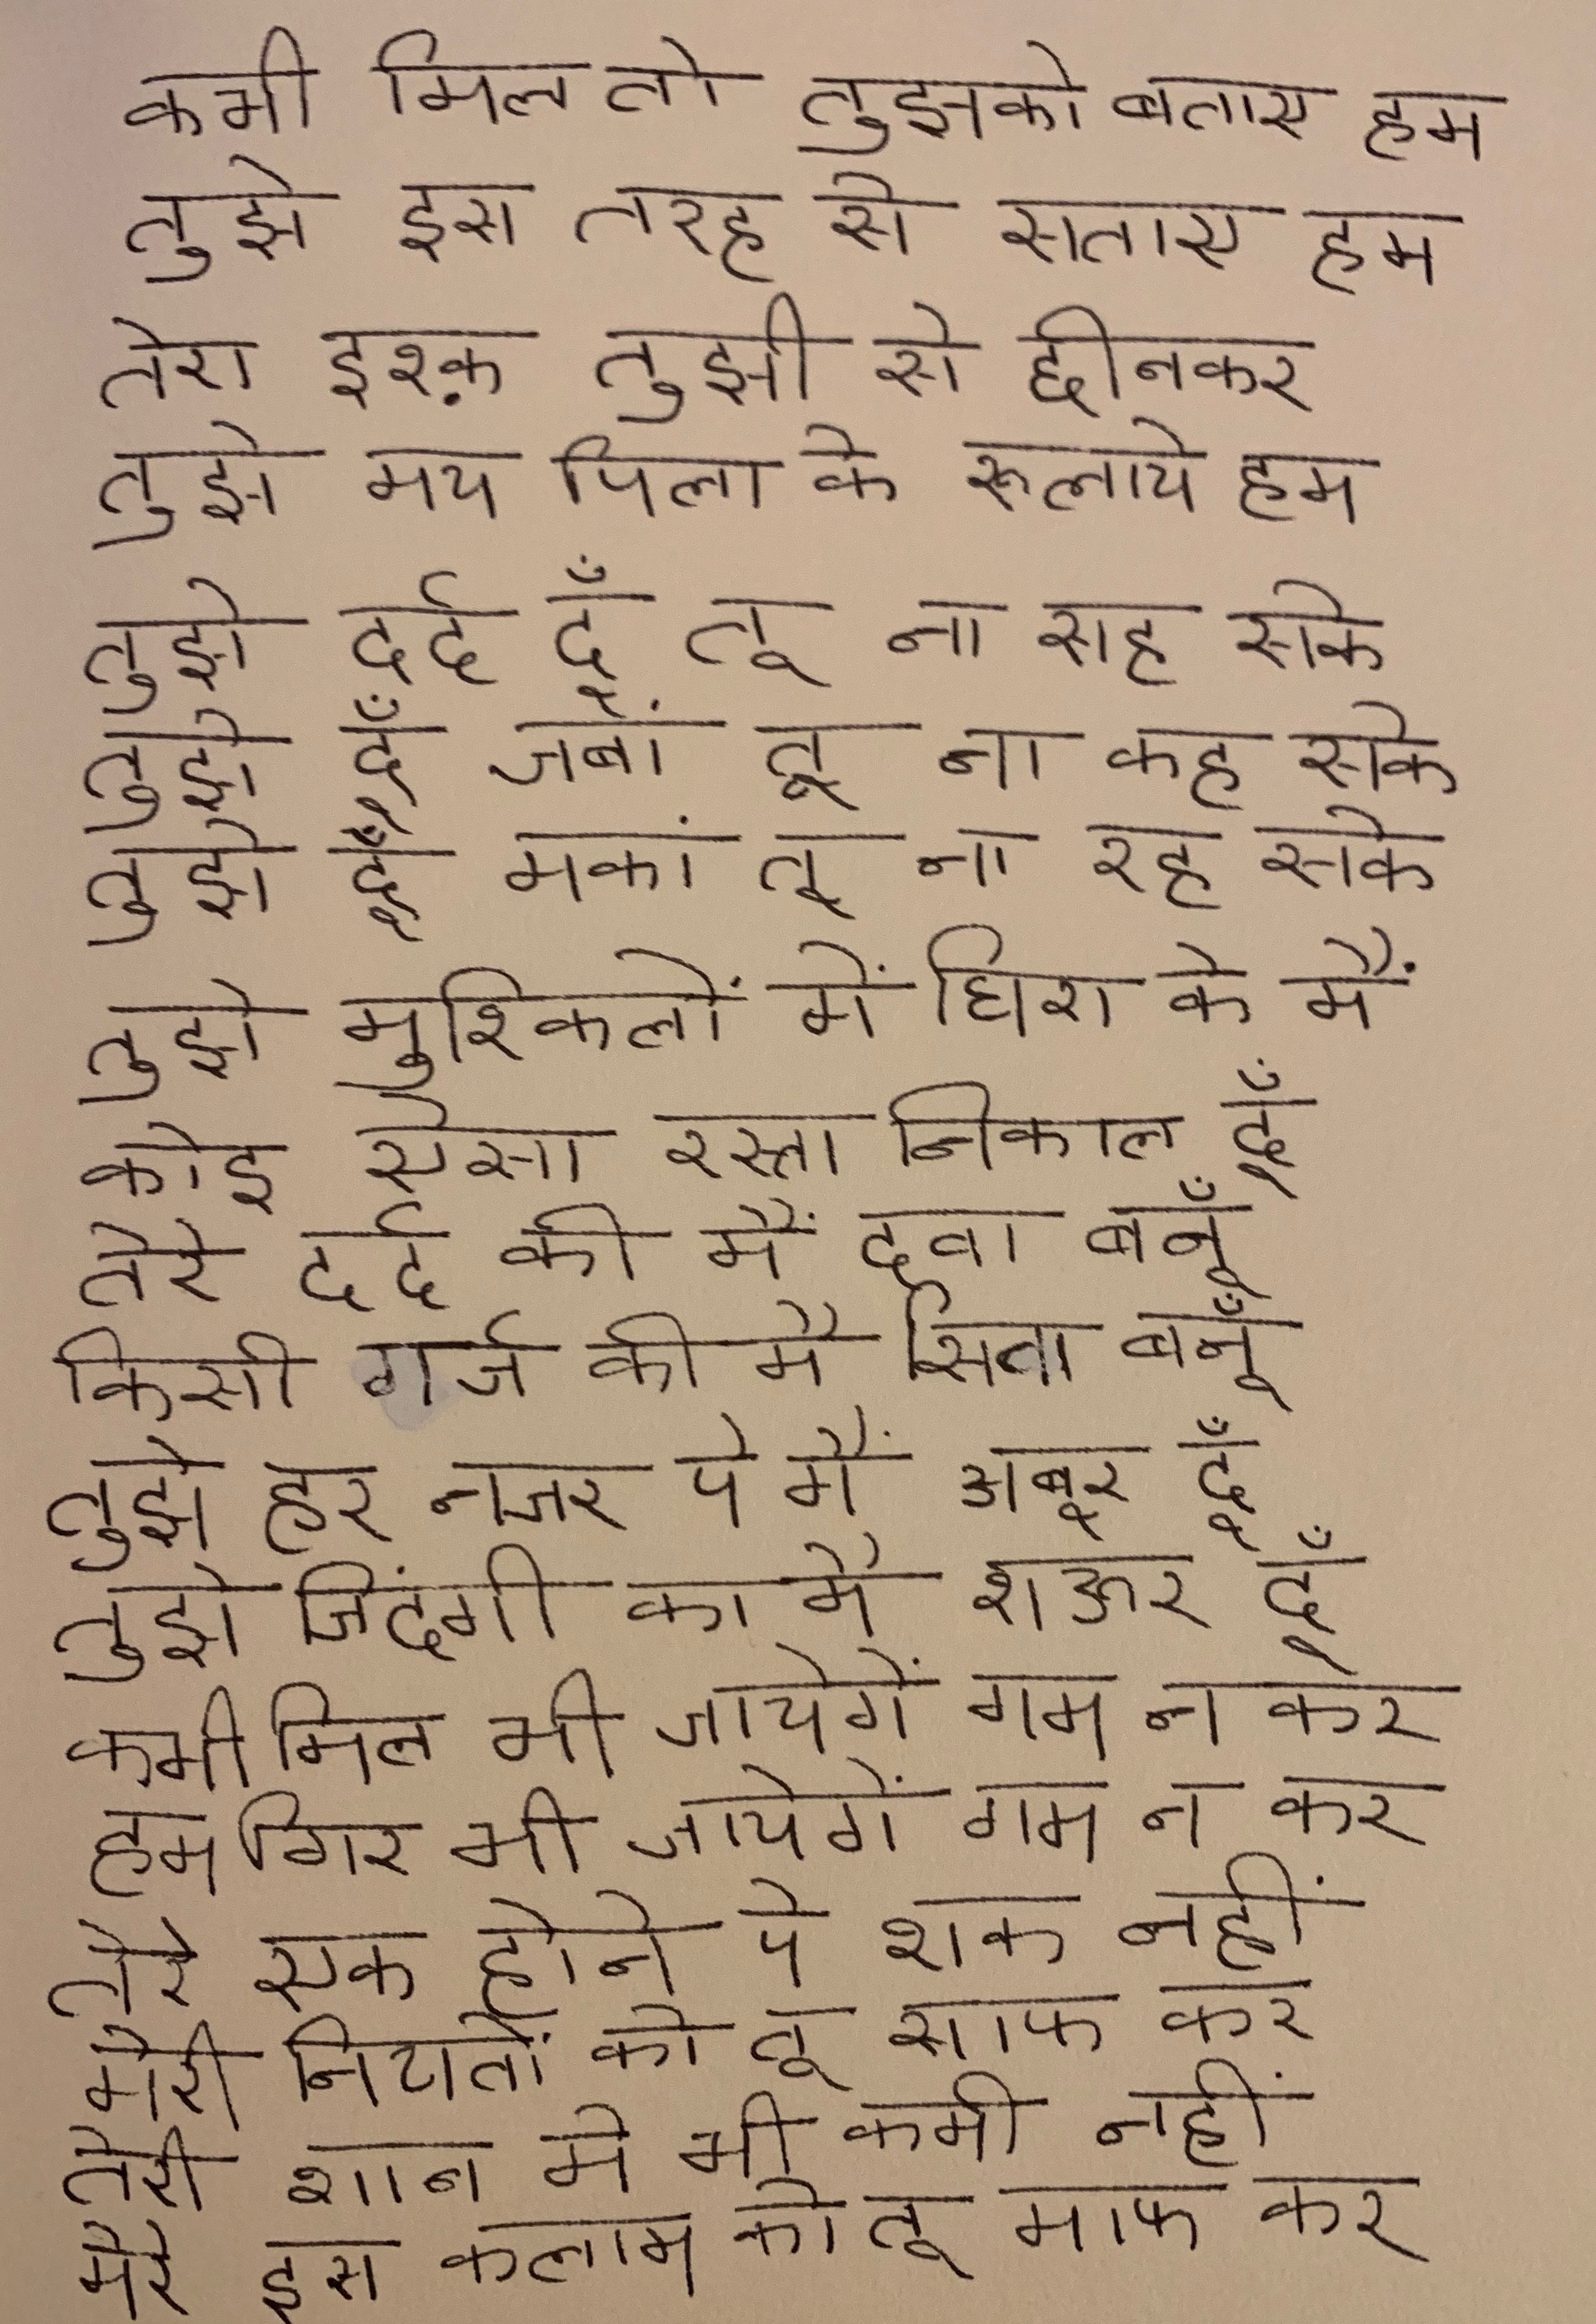 कभी मिल तो तुझको बताए हम
तुझे इस तरह से सताए हम
तेरा इश्क़ तुझी से छीनकर
तुझे मय पिला के रूलाये हम
तुझे दर्द दूँ तू ना सह सके
तुझे दूँ जबां तू ना कह सके
तुझे दूँ मकां तू ना रह सके
तुझे मुश्किलों में घिरा के मैं
कोइ ऐसा रस्ता निकाल दूँ
तेरे दर्द की मैं दवा बनूँ
किसी गर्ज की मै सिवा बनूँ
तुझे हर नजर पे मैं अबूर दूँ
तुझे जिंदगी का मै शऊर दूँ
कभी मिल भी जायेगें गम न कर
हम गिर भी जायेगें गम न कर
तेरे एक होने पे शक नहीं
मेरी नियतों को तू साफ कर
तेरी शान मे भी कमी नहीं
मेरे इस कलाम को तू माफ कर